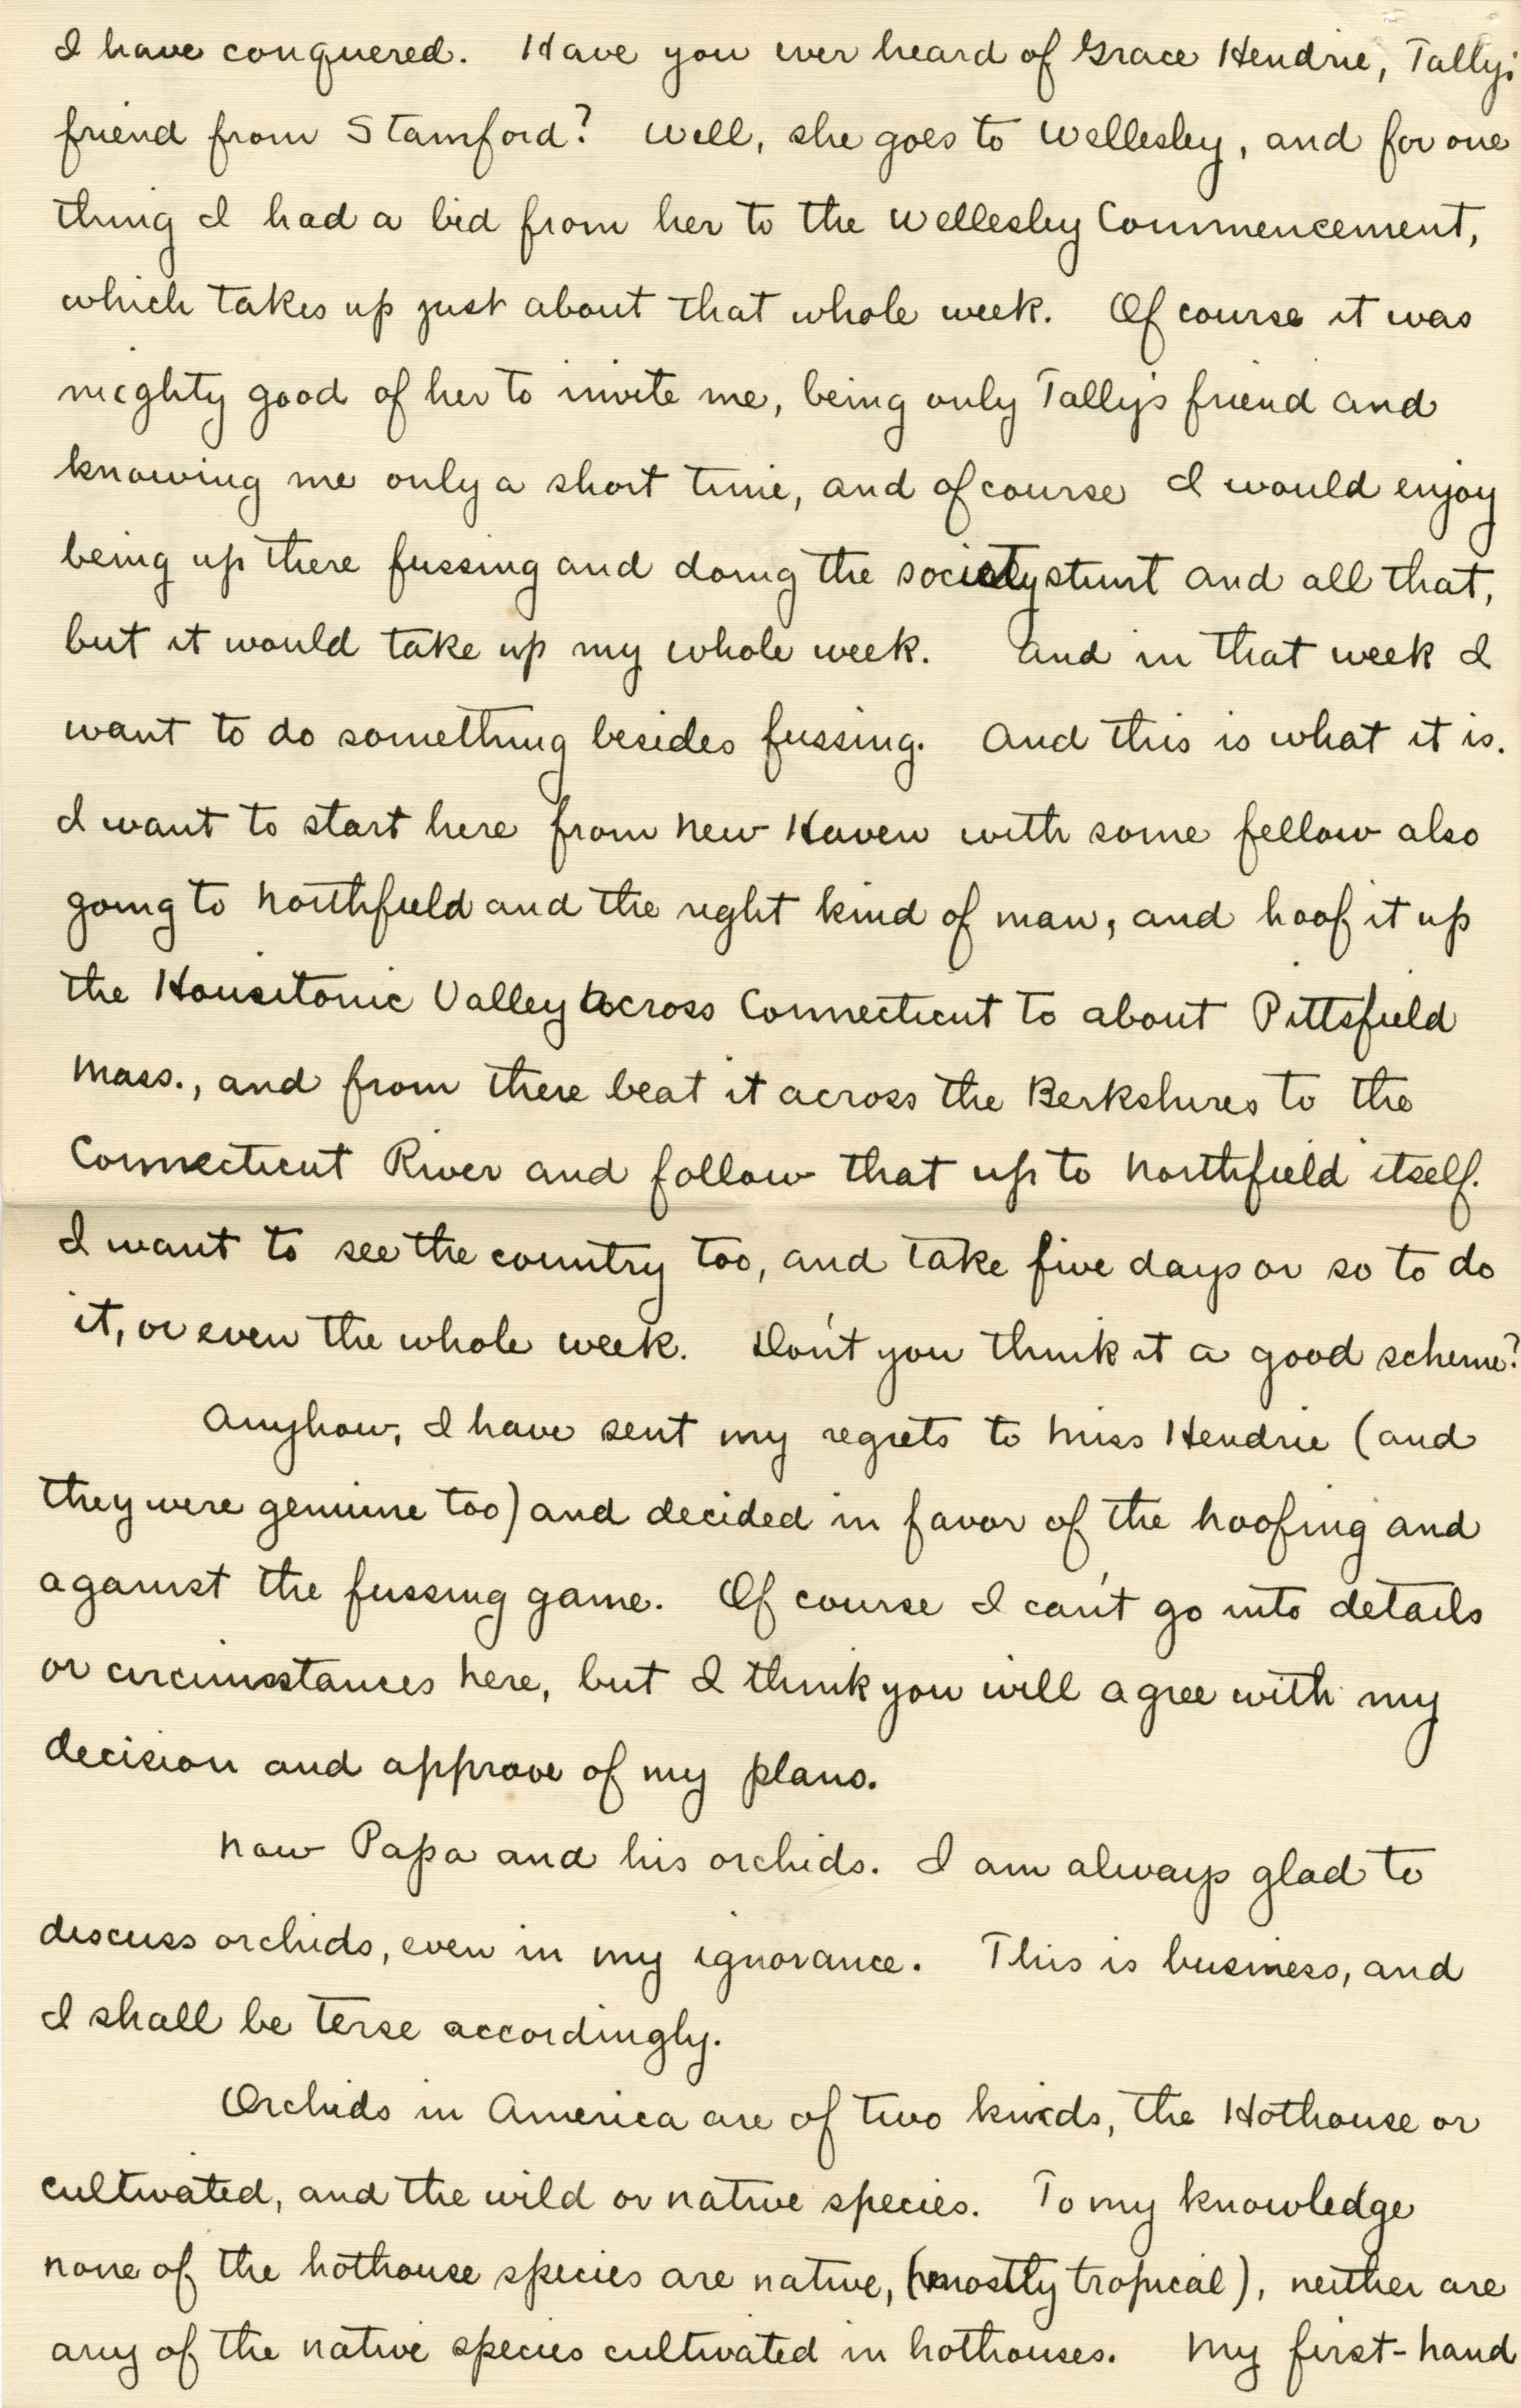 I have conquered. Have you ever heard of Grace Hendrie, Tally's
friend from Stamford? Well, she goes to Wellesley, and for one
thing I had a bid from her to the Wellesley Commencement,
which takes up just about that whole week. Of course it was
mighty good of her to invite me, being only Tally's friend and
knowing me only a short time, and of course I would enjoy
being up there fussing and doing the society stunt and all that,
but it would take up my whole week. And in that week I
want to do something besides fussing. And this is what it is.
I want to start here from New Haven with some fellow also
going to Northfield and the right kind of man, and hoof it up
the Housitonic Valley across Connecticut to about Pittsfield
Mass., and from there beat it across the Berkshires to the
Connecticut River and follow that up to Northfield itself.
I want to see the country too, and take five days or so to do
it, or even the whole week. Don't you think it a good scheme?
Anyhow, I have sent my regrets to Miss Hendrie (and
they were genuine too) and decided in favor of the hoofing and
against the fussing game. Of course I can't go into details
or circumstances here, but I think you will agree with my
decision and approve of my plans.
Now Papa and his orchids. I am always glad to
discuss orchids, even in my ignorance. This is business, and
I shall be terse accordingly.
Orchids in America are of two kinds, the Hothouse or
cultivated, and the wild or native species. To my knowledge
none of the hothouse species are native, (mostly tropical), neither are
any of the native species cultivated in hothouses. My first-hand